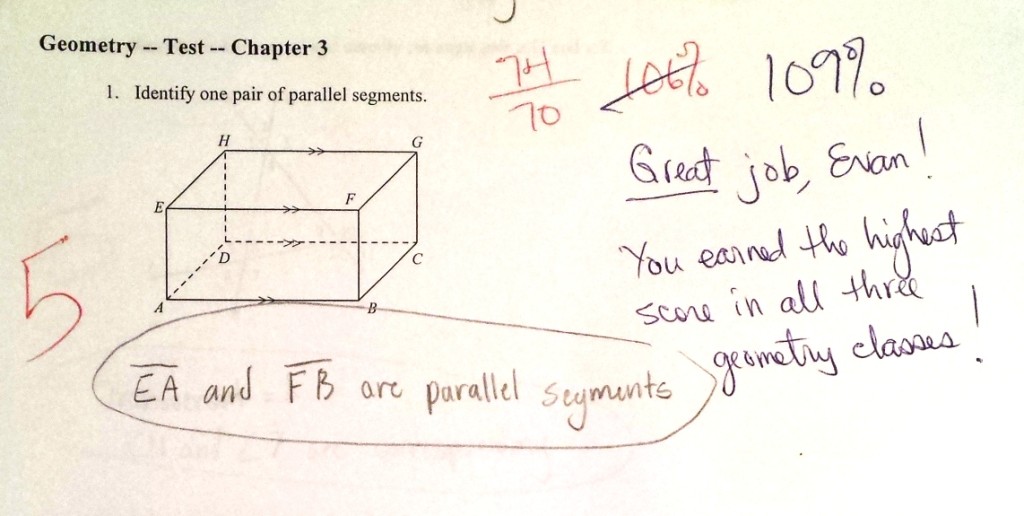 Geometry -- Test -- Chapter 3
74
70
106%
109%
1. Identify one pair of parallel segments.
Great job, Evan!
You earned the highest
score in all three
geometry classes!
H
G
E
F
D
C
A
B
5
EA and FB are parallel segments